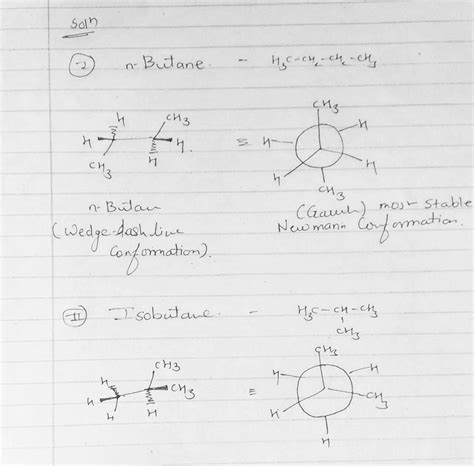 Soln
I n-Butane. - H3C-CH2-CH2-CH3
H CH3 CH3 H
H H. ≡ H
CH3 H H H
CH3
n-Butan (Gauch) most stable
(Wedge-dash line Newmann Conformation.
Conformation).
II Isobutane. - H3C-CH-CH3
CH3
CH3 CH3
H CH3 ≡ H H
H H H H CH3
H